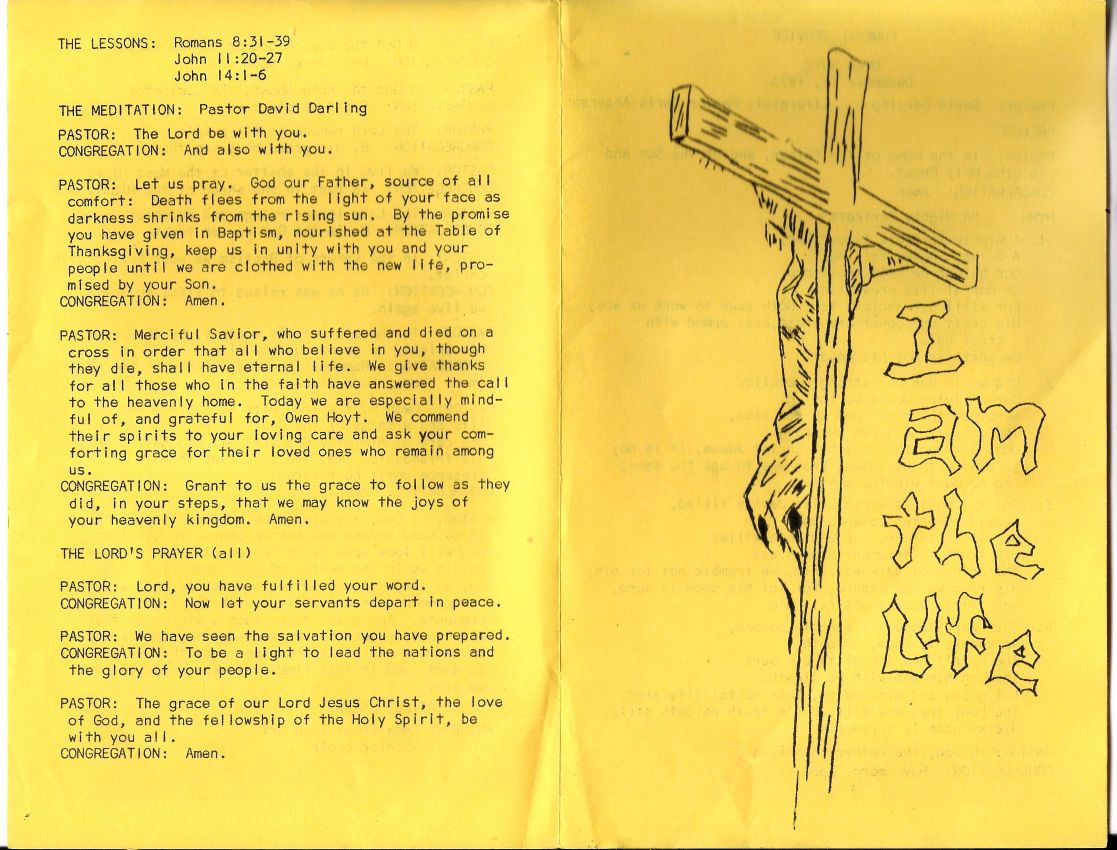 THE LESSONS: Romans 8:31-39
John 11:20-27
John 14:1-6
THE MEDITATION: Pastor David Darling
PASTOR: The Lord be with you.
CONGREGATION: And also with you.
PASTOR: Let us pray. God our Father, source of all
comfort: Death flees from the light of your face as
darkness shrinks from the rising sun. By the promise
you have given in Baptism, nourished at the Table of
Thanksgiving, keep us in unity with you and your
people until we are clothed with the new life, pro-
mised by your Son.
CONGREGATION: Amen.
PASTOR: Merciful Savior, who suffered and died on a
cross in order that all who believe in you, though
they die, shall have eternal life. We give thanks
for all those who in the faith have answered the call
to the heavenly home. Today we are especially mind-
ful of, and grateful for, Owen Hoyt. We commend
their spirits to your loving care and ask your com-
forting grace for their loved ones who remain among
us.
CONGREGATION: Grant to us the grace to follow as they
did, in your steps, that we may know the joys of
your heavenly kingdom. Amen.
THE LORD'S PRAYER (all)
PASTOR: Lord, you have fulfilled your word.
CONGREGATION: Now let your servants depart in peace.
PASTOR: We have seen the salvation you have prepared.
CONGREGATION: To be a light to lead the nations and
the glory of your people.
PASTOR: The grace of our Lord Jesus Christ, the love
of God, and the fellowship of the Holy Spirit, be
with you all.
CONGREGATION: Amen.
I
am
the
Life